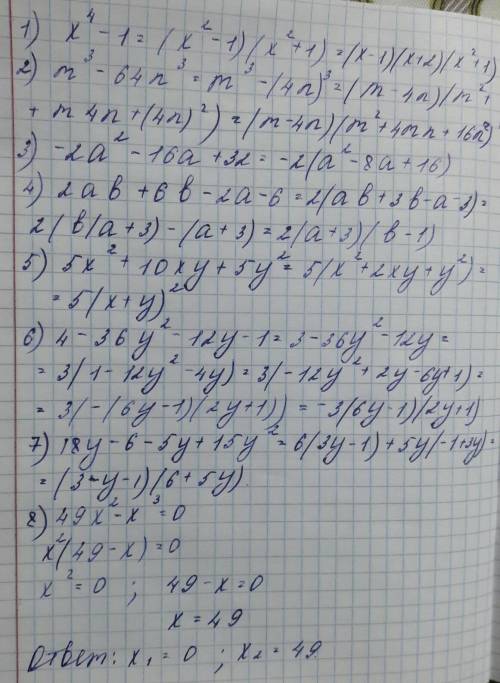 1) x⁴ - 1 = (x² - 1)(x² + 1) = (x-1)(x+2)(x²+1)
2) m³ - 64n³ = m³ - (4n)³ = (m - 4n)(m² +
+ m4n + (4n)²) = (m-4n)(m² + 4mn + 16n²)
3) -2a² - 16a + 32 = -2(a² - 8a + 16)
4) 2ab + 6b - 2a - 6 = 2(ab + 3b - a - 3) =
2(b(a+3) - (a+3) = 2(a+3)(b-1)
5) 5x² + 10xy + 5y² = 5(x² + 2xy + y²) =
= 5(x+y)²
6) 4 - 36y² - 12y - 1 = 3 - 36y² - 12y =
= 3(1 - 12y² - 4y) = 3(-12y² + 2y - 6y + 1) =
= 3(-(6y-1)(2y+1)) = -3(6y-1)(2y+1)
7) 18y - 6 - 5y + 15y² = 6(3y-1) + 5y(-1+3y) =
= (3-y-1)(6+5y)
8) 49x² - x³ = 0
x²(49 - x) = 0
x² = 0 ; 49 - x = 0
x = 49
Ответ: x₁ = 0 ; x₂ = 49